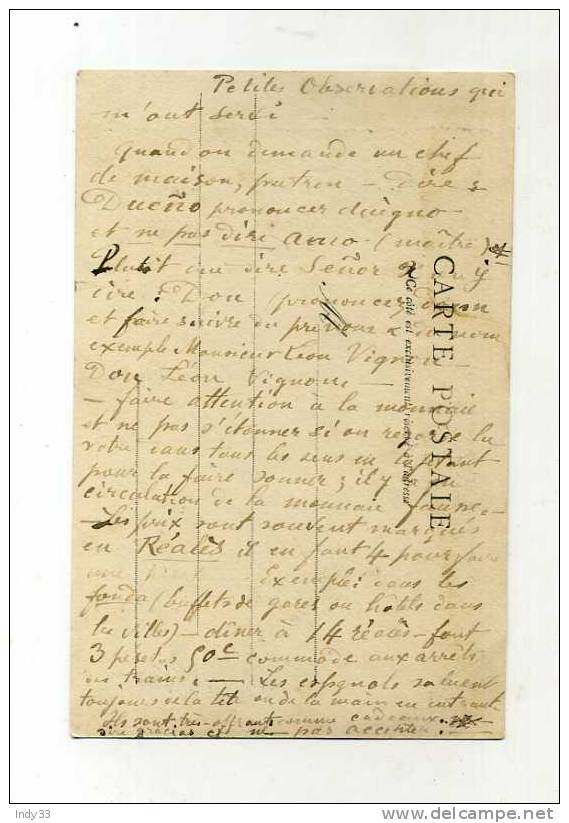 Petites Observations qui
m'ont servi
Quand on demande un chef
de maison, patron - Dire :
Dueño prononcer douègno
et ne pas dire amo (maître)
Plutôt que dire Señor
dire : Don prononcez
et faire suivre du prénom & du nom
exemple Monsieur Léon Vignon
Don Léon Vignon, -
- faire attention à la monnaie
et ne pas s'étonner si on regarde la
vôtre dans tous les sens en tapant
pour la faire sonner ; il y en
circulation de la monnaie fausse -
- Les prix sont souvent marqués
en Réalès il en faut 4 pour faire
une Exemple : dans les
fonda (buffets de gares ou hôtels dans
les villes) - dîner à 14 réalès - font
3 pesetas 50c commode aux arrêts
de trains. - Les espagnols saluent
toujours de la tête ou de la main en entrant
Ils sont très-offrants comme cadeaux
dire gracias et ne pas accepter.
CARTE POSTALE
Ce côté est exclusivement réservé à l'adresse
Indy33
www.delcampe.net